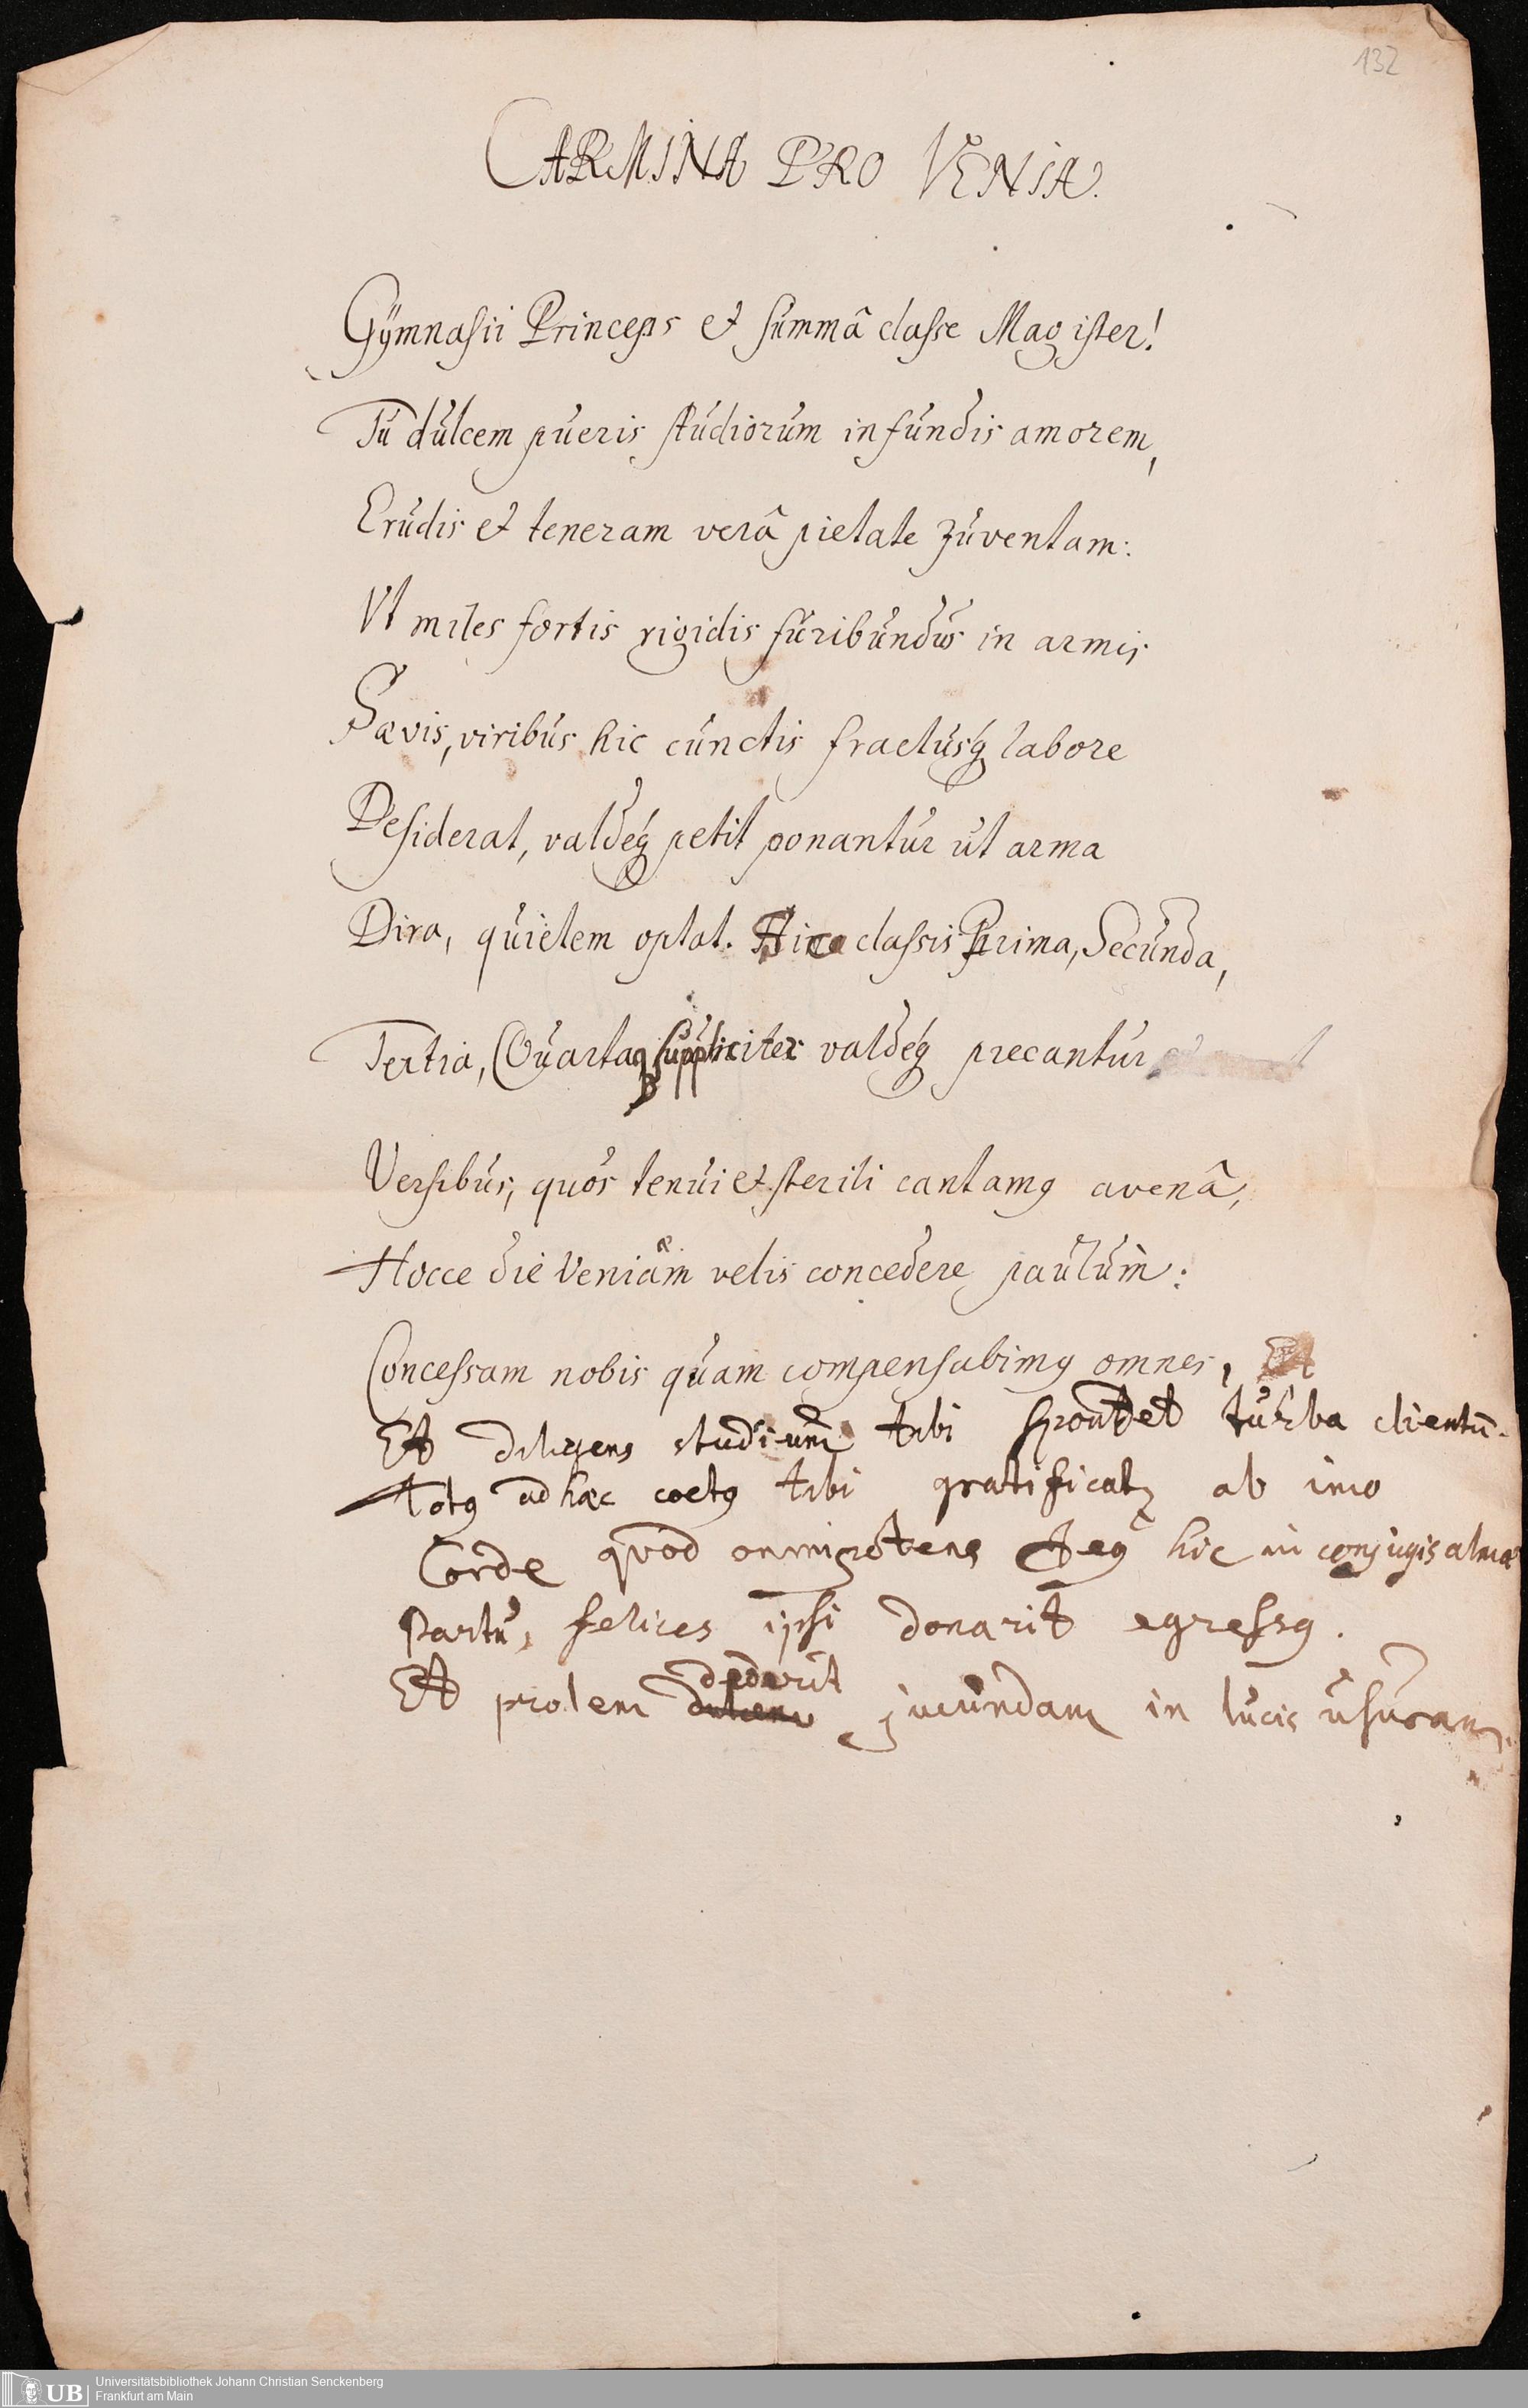 132
CARMINA PRO VENIA.
Gÿmnasii Princeps et summâ classe Magister!
Tu dulcem pueris studiorum infundis amorem,
Erudis et teneram verâ pietate juventam:
Vt miles fortis rigidis furibundus in armis
Sævis, viribus hic cunctis fractusq labore
Desiderat, valdeq petit ponantur ut arma
Dira, quietem optat. Hinc classis Prima, Secunda,
Tertia, Quartaq suppliciter valdeq precantur
Versibus, quos tenui et sterili cantamq avenâ,
Hocce die Veniam velis concedere paulum:
Concessam nobis quam compensabimq omnes,
Et diligens studium tibi spondet turba clientū.
Totq ad hæc coetq tibi gratificatꝛ ab imo
Corde quod omnipotens Deq hic in conjugis almæ
Partu, felices ipsi donarit egressq.
dederit
Et prolem dulcem jucundam in lucis usuram.
UB Universitätsbibliothek Johann Christian Senckenberg
Frankfurt am Main